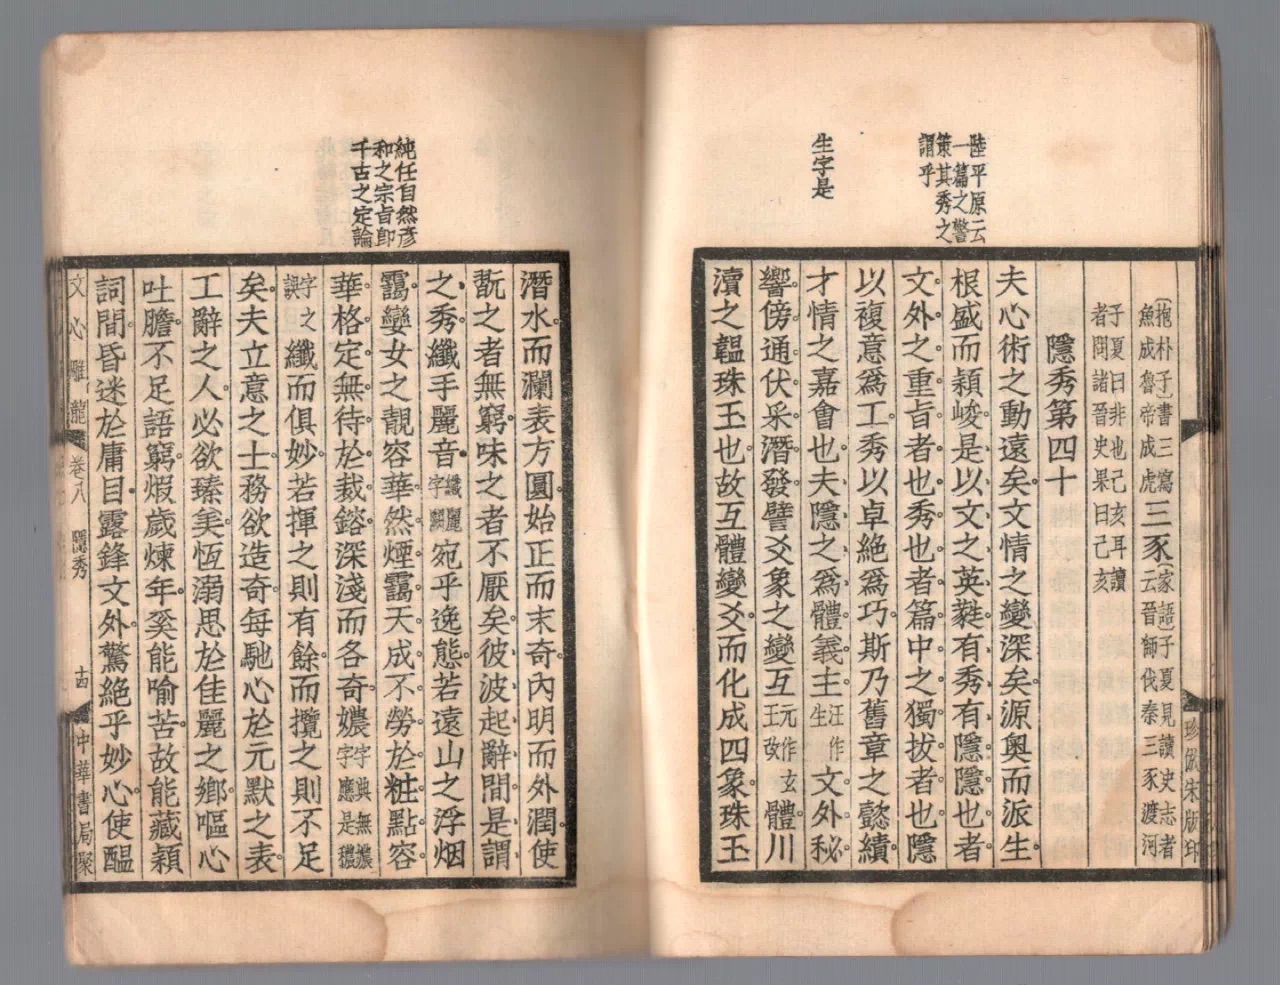 陸平原云
一篇之警
策其秀之
謂乎
生字是
珍倣宋版印
(抱朴子)書三寫
魚成魯帝成虎
三豕
(家語)子夏見讀史志者
云晉師伐秦三豕渡河
子夏曰非也己亥耳讀
者問諸晉史果曰己亥
隱秀第四十
夫心術之動遠矣文情之變深矣源奧而派生
根盛而穎峻是以文之英蕤有秀有隱隱也者
文外之重旨者也秀也者篇中之獨拔者也隱
以複意爲工秀以卓絶爲巧斯乃舊章之懿績
才情之嘉會也夫隱之爲體義主汪作生文外秘
響傍通伏采潛發譬爻象之變互元作玄王改體川
瀆之韞珠玉也故互體變爻而化成四象珠玉
純任自然彥
和之宗旨即
千古之定論
潛水而瀾表方圓始正而末奇內明而外潤使
翫之者無窮味之者不厭矣彼波起辭間是謂
之秀纖手麗音纖麗字闕宛乎逸態若遠山之浮烟
靄孌女之靚容華然煙靄天成不勞於粧點容
華格定無待於裁鎔深淺而各奇嬝字典無嬝字應是穠
字之誤纖而俱妙若揮之則有餘而攬之則不足
矣夫立意之士務欲造奇每馳心於元默之表
工辭之人必欲臻美恆溺思於佳麗之鄉嘔心
吐膽不足語窮煆歲煉年奚能喻苦故能藏穎
詞間昏迷於庸目露鋒文外驚絶乎妙心使醞
文心雕龍
卷八
隱秀
十四
中華書局聚